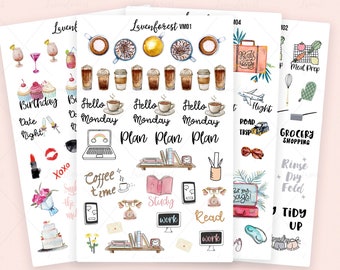 Lavenforest VM01
Hello Monday
Hello Monday
Hello Monday
Plan Plan Plan
Coffee time
Study
Read
work
work
Birthday
Date Night
XOXO
Meal Prep
ROAD TRIP
GROCERY SHOPPING
Rinse Dry Fold
TIDY UP